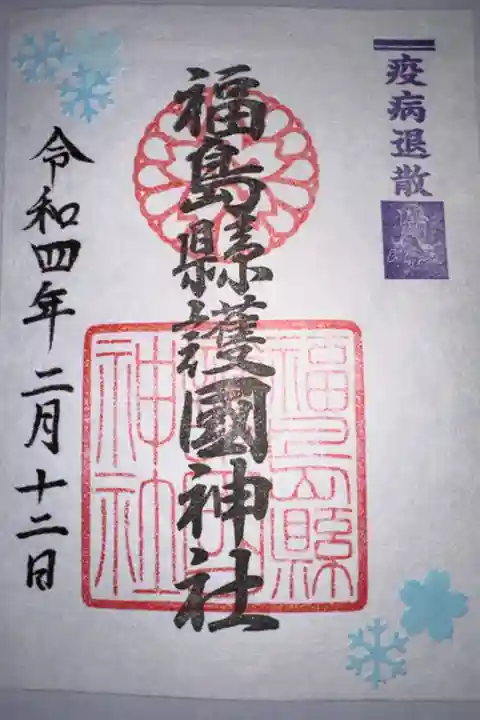 疫病退散
福島縣護國神社
福島縣護國神社
令和四年二月十二日